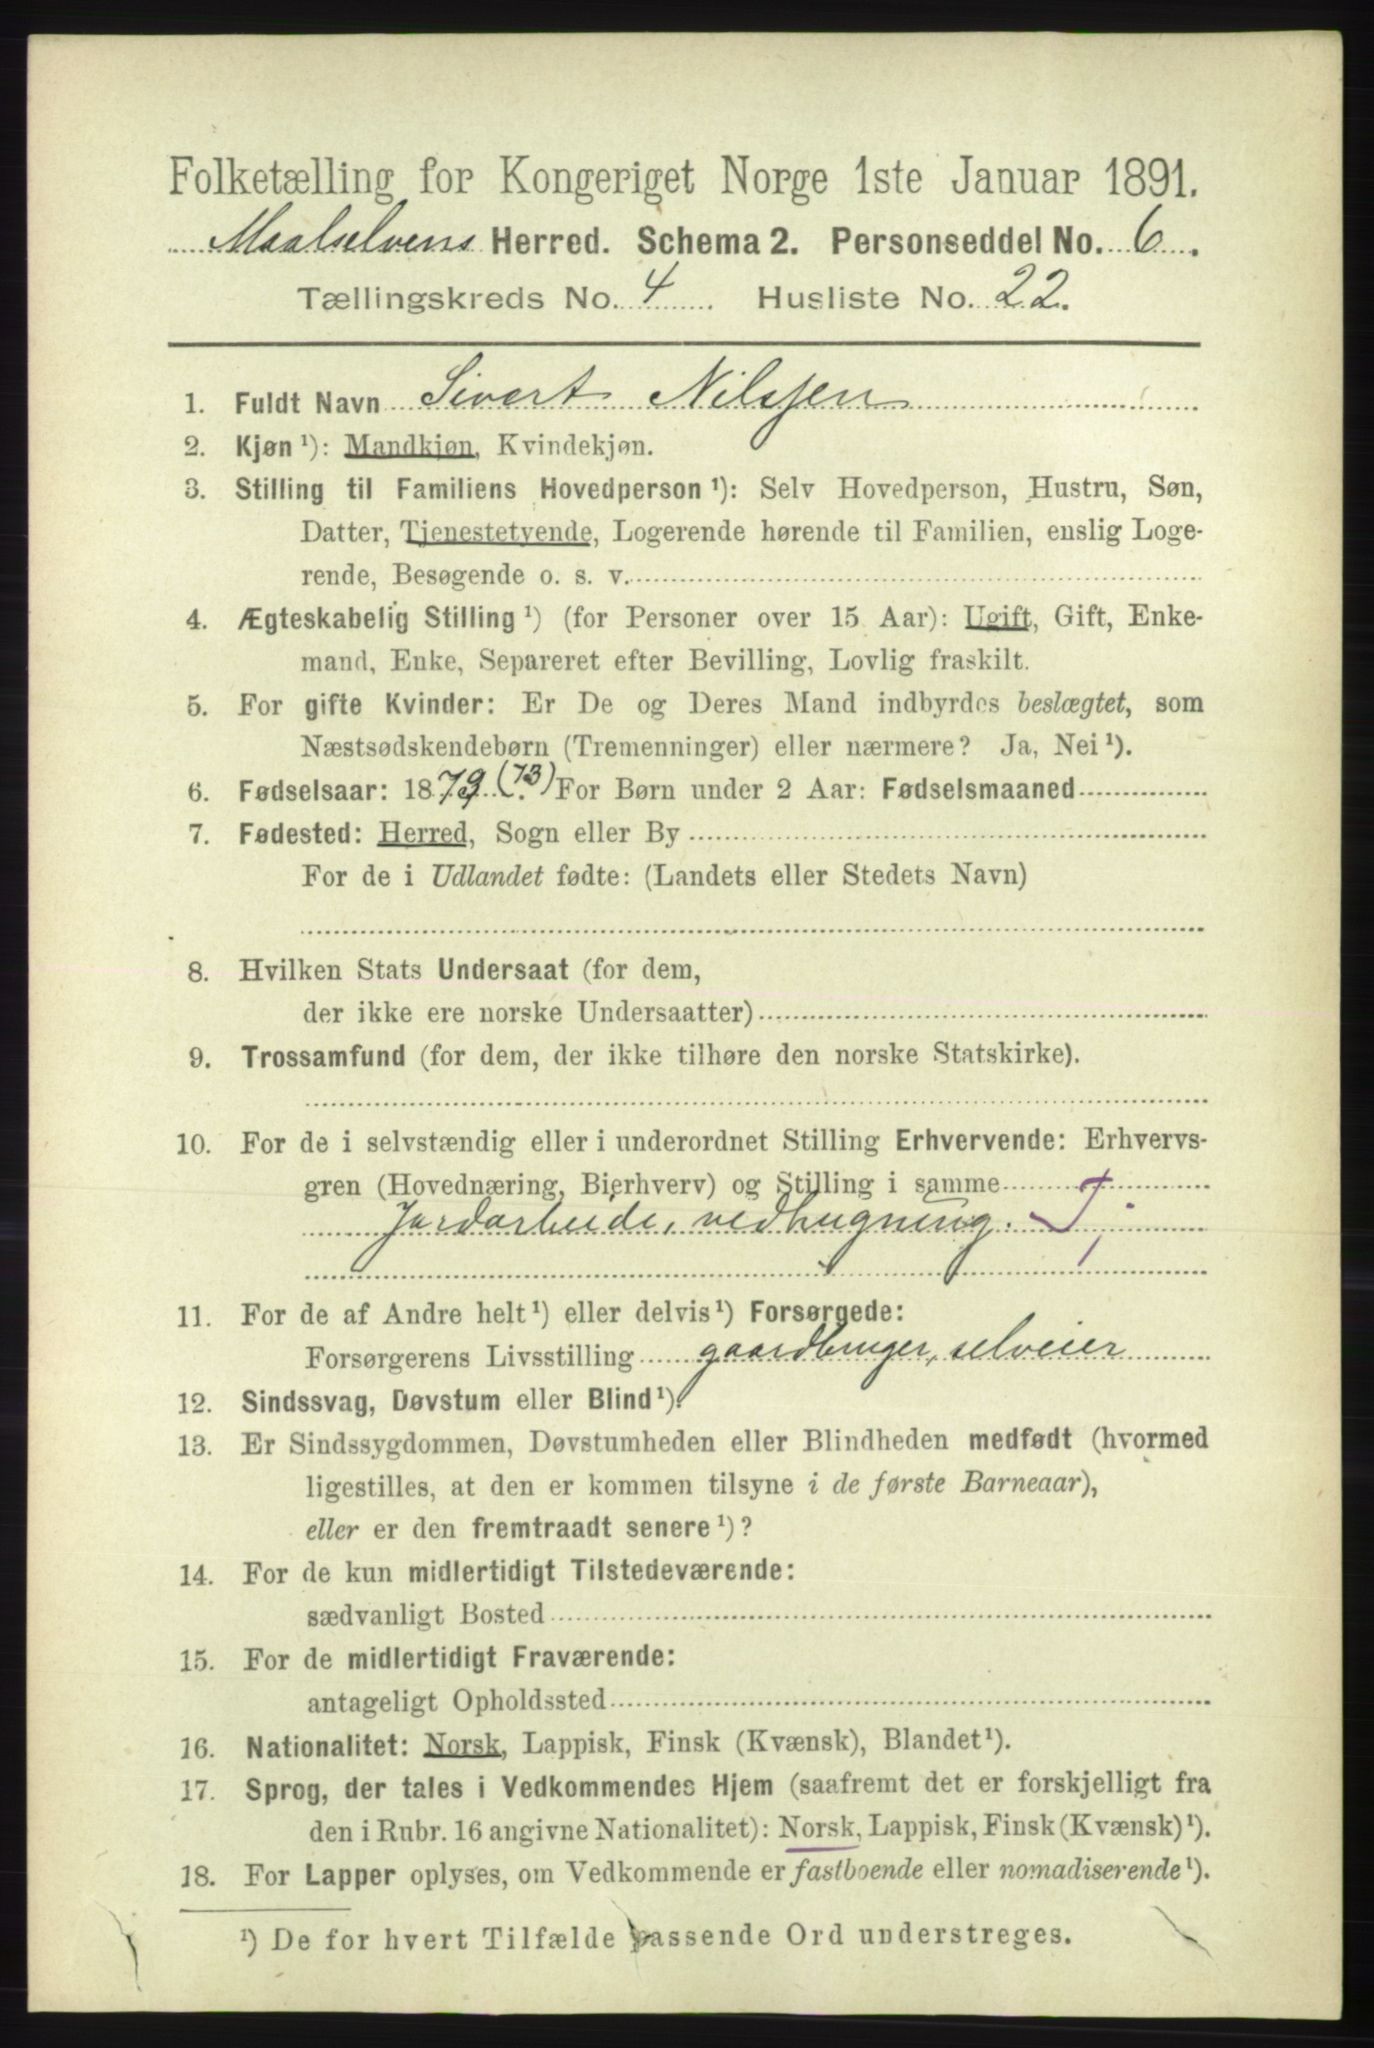 Folketælling for Kongeriget Norge 1ste Januar 1891.
Maalselvens Herred. Schema 2. Personseddel No. 6.
Tællingskreds No. 4. Husliste No. 22.
1. Fuldt Navn Sivert Nilssen
2. Kjøn ¹): Mandkjøn, Kvindekjøn.
3. Stilling til Familiens Hovedperson ¹): Selv Hovedperson, Hustru, Søn,
Datter, Tjenestetyende, Logerende hørende til Familien, enslig Loge-
rende, Besøgende o. s. v.
4. Ægteskabelig Stilling ¹) (for Personer over 15 Aar): Ugift, Gift, Enke-
mand, Enke, Separeret efter Bevilling, Lovlig fraskilt.
5. For gifte Kvinder: Er De og Deres Mand indbyrdes beslægtet, som
Næstsødskendebørn (Tremenninger) eller nærmere? Ja, Nei ¹).
6. Fødselsaar: 1879. (73) For Børn under 2 Aar: Fødselsmaaned
7. Fødested: Herred, Sogn eller By
For de i Udlandet fødte: (Landets eller Stedets Navn)
8. Hvilken Stats Undersaat (for dem,
der ikke ere norske Undersaatter)
9. Trossamfund (for dem, der ikke tilhøre den norske Statskirke).
10. For de i selvstændig eller i underordnet Stilling Erhvervende: Erhvervs-
gren (Hovednæring, Bierhverv) og Stilling i samme
Jordarbeide, vedhugning. T,
11. For de af Andre helt ¹) eller delvis ¹) Forsørgede:
Forsørgerens Livsstilling gaardbruger, selveier
12. Sindssvag, Døvstum eller Blind ¹).
13. Er Sindssygdommen, Døvstumheden eller Blindheden medfødt (hvormed
ligestilles, at den er kommen tilsyne i de første Barneaar),
eller er den fremtraadt senere ¹)?
14. For de kun midlertidigt Tilstedeværende:
sædvanligt Bosted
15. For de midlertidigt Fraværende:
antageligt Opholdssted
16. Nationalitet: Norsk, Lappisk, Finsk (Kvænsk), Blandet ¹).
17. Sprog, der tales i Vedkommendes Hjem (saafremt det er forskjelligt fra
den i Rubr. 16 angivne Nationalitet): Norsk, Lappisk, Finsk (Kvænsk) ¹).
18. For Lapper oplyses, om Vedkommende er fastboende eller nomadiserende ¹).
¹) De for hvert Tilfælde passende Ord understreges.